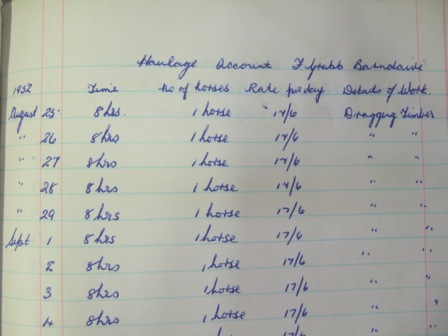 Haulage Account F Grubb
1952 Time No of horses Rate per day Details of Work.
August 25 8 hrs. 1 horse 17/6 Dragging Timber
" 26 8 hrs 1 horse 17/6 " "
" 27 8 hrs 1 horse 17/6 " "
" 28 8 hrs 1 horse 17/6 " "
" 29 8 hrs 1 horse 17/6 " "
Sept 1 8 hrs 1 horse 17/6 " "
2 8 hrs 1 horse 17/6 " "
3 8 hrs 1 horse 17/6 " "
4 8 hrs 1 horse 17/6 " "